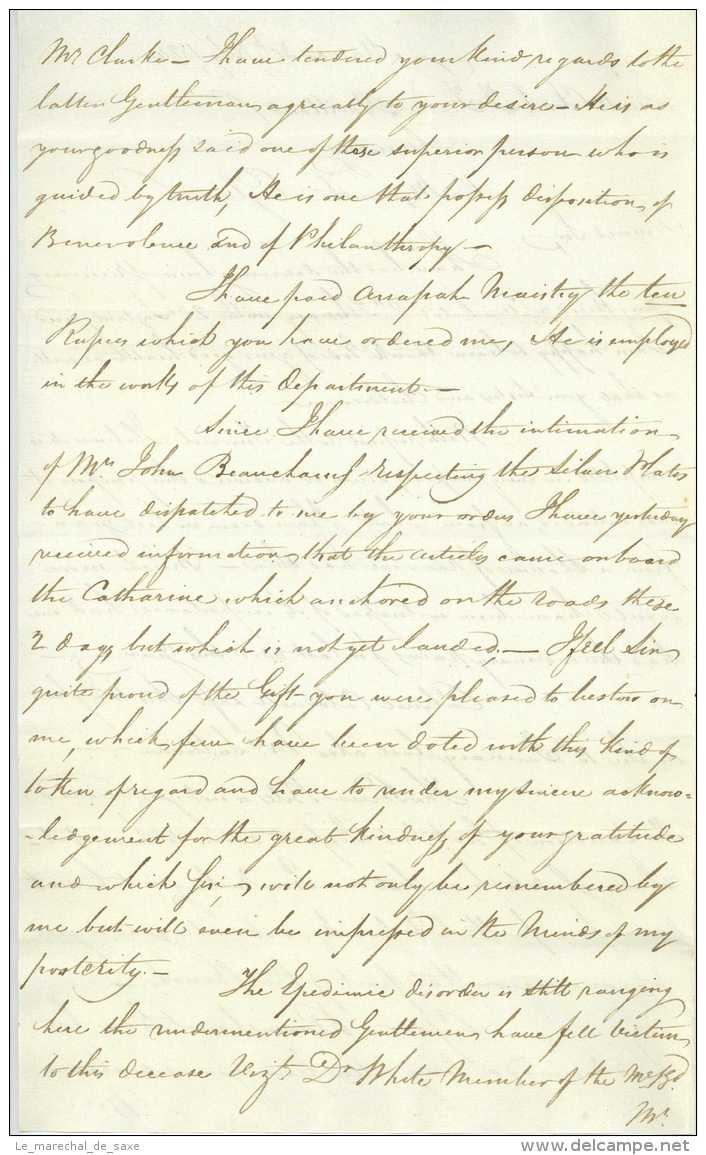 Mr Clarke – I have tendered your kind regards to the
latter Gentleman agreeably to your desire – He is as
your goodness said one of these superior person who is
guided by truth, He is one that possess disposition of
Benevolence and of Philanthropy –
I have paid Arrapah Maistry the ten
Rupees which you have ordered me, He is employed
in the works of this Department. –
Since I have received the intimation
of Mr John Beauchamp respecting the Silver Plates
to have dispatched to me by your orders I have yesterday
received information that the articles came onboard
the Catharine which anchored on the roads these
2 days but which is not yet landed, – I feel Sir
quite proud of the Gift you were pleased to bestow on
me, which few have been doted with this kind of
token of regard and have to render my sincere acknow=
=ledgement for the great kindness of your gratitude
and which Sir, will not only be remembered by
me but will even be impressed in the Minds of my
posterity. –
The Epedimic disorder is still ranging
here the undermentioned Gentlemen have fell Victim
to this decease Vizt Dr White Member of the
Mr
Le_marechal_de_saxe
delcampe.net